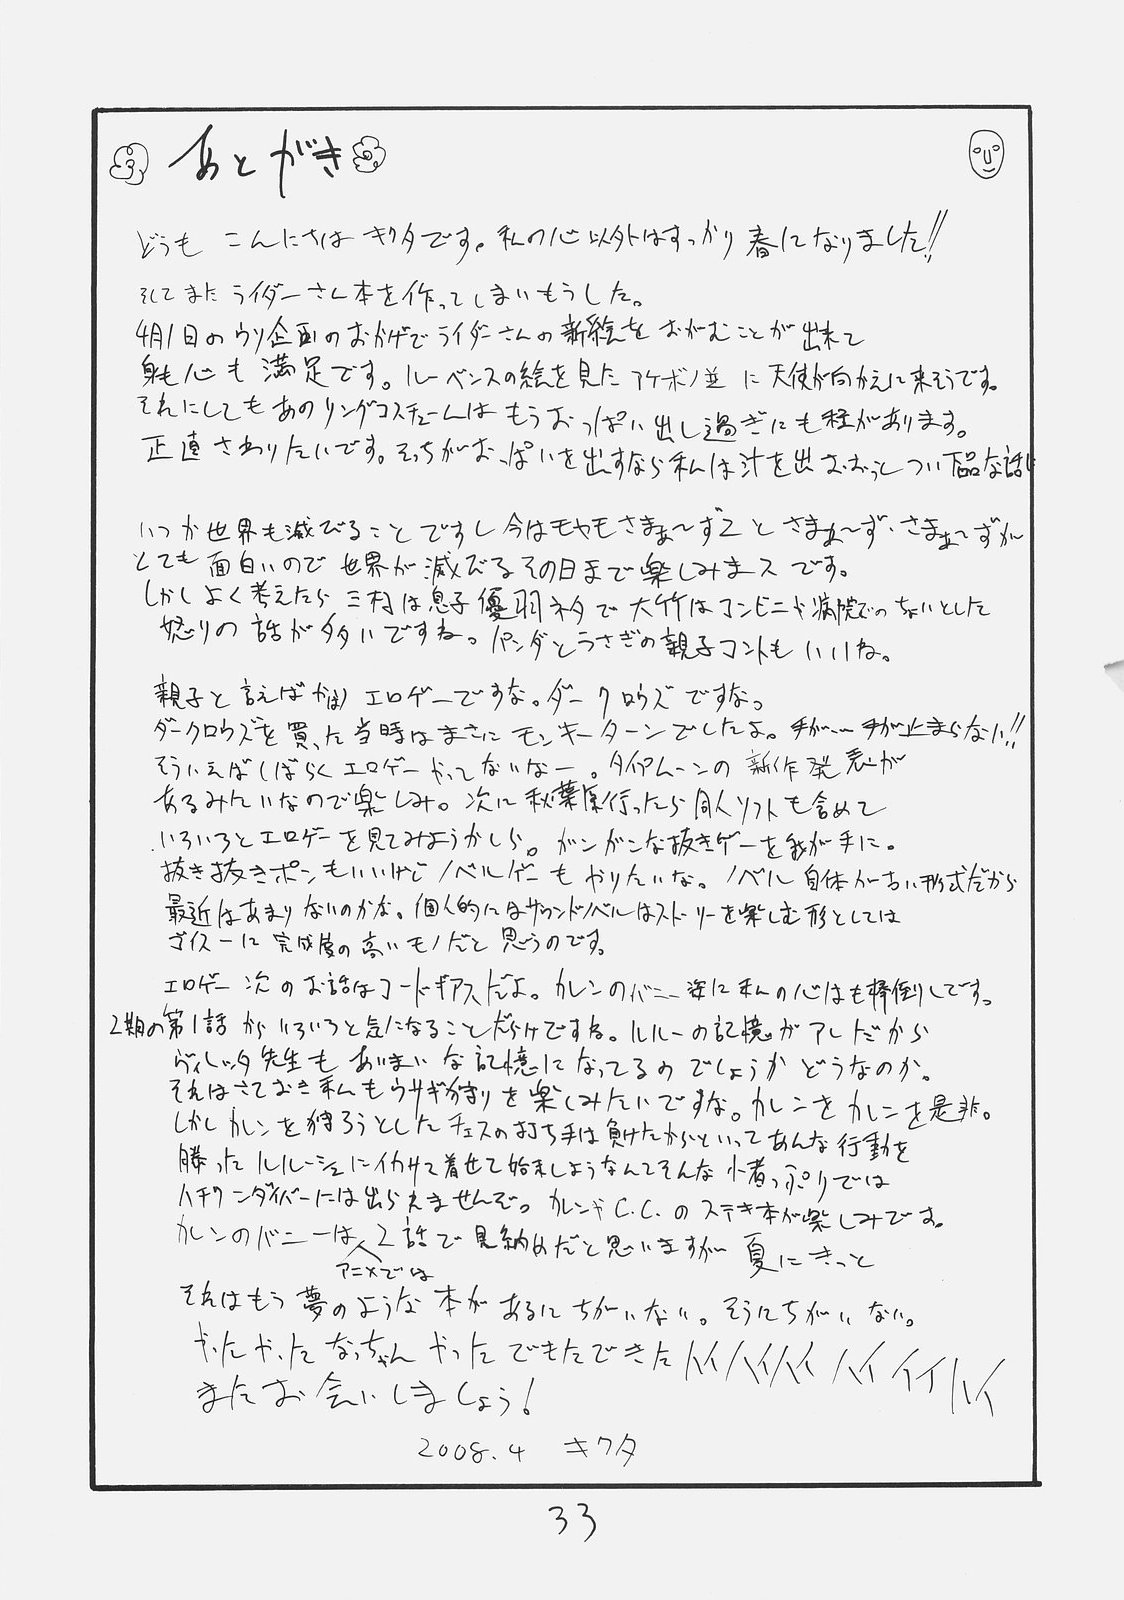 あとがき
どうも こんにちは キクタです。私の心以外はすっかり春になりました!!
そしてまたライダーさん本を作ってしまいもうした。
4月1日のウソ企画のおかげでライダーさんの新絵をおがむことが出来て
身も心も満足です。ルーベンスの絵を見たアケボノ並に天使が向かえに来そうです。
それにしてもあのリングコスチュームはもうおっぱい出し過ぎにも程があります。
正直さわりたいです。そっちがおっぱいを出すなら私は汁を出すおおっとつい下品な話に
いつか世界も滅びることですし今はモヤモヤさまぁ〜ず2とさまぁ〜ず・さまぁ〜ずが
とても面白いので世界が滅びるその日まで楽しみまスです。
しかしよく考えたら三村は息子優羽ネタで大竹はコンビニや病院でのちょいとした
怒りの話が多いですね。パンダとうさぎの親子コントもいいね。
親子と言えばやはりエロゲーですな。ダークロウズですな。
ダークロウズを買った当時はまさにモンキーターンでしたよ。手が…手が止まらない!!
そういえばしばらくエロゲーやってないなー。タイアムーンの新作発表が
あるみたいなので楽しみ。次に秋葉原行ったら同人ソフトも含めて
いろいろとエロゲーを見てみようかしら。ガンガンな抜きゲーを我が手に。
抜き抜きポンもいいけどノベルゲーもやりたいな。ノベル自体が古い形式だから
最近はあまりないのかな。個人的にはサウンドノベルはストーリーを楽しむ形としては
ゴイスーに完成度の高いモノだと思うのです。
エロゲー次のお話はコードギアスだよ。カレンのバニー姿に私の心はも棒倒しです。
2期の第1話からいろいろと気になることだらけですね。ルルーの記憶がアレだから
ヴィレッタ先生もあいまいな記憶になってるのでしょうかどうなのか。
それはさておき私もウサギ狩りを楽しみたいですな。カレンをカレンを是非。
しかしカレンを狩ろうとしたチェスの打ち手は負けたからといってあんな行動を
勝ったルルーシュにイカサマ着せて始末しようなんてそんな小者っぷりでは
ハチワンダイバーには出らえませんぞ。カレンやC.C.のステキ本が楽しみです。
カレンのバニーはアニメでは2話で見納めだと思いますが夏にきっと
それはもう夢のような本があるにちがいない。そうにちがいない。
やったやったなっちゃんやったでもたできたハイハイハイハイイイハイ
またお会いしましょう!
2008.4 キクタ
33